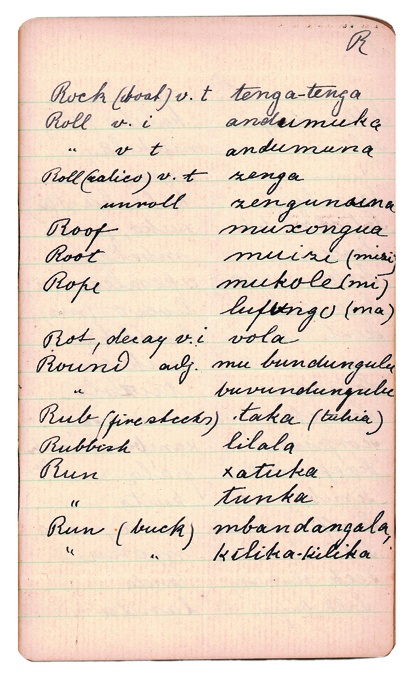 R
Rock (boat) v. t tenga-tenga
Roll v. i andumuka
" v t andumuna
Roll (calico) v. t zenga
unroll zengunauna
Roof muxongua
Root muizi (mizi)
Rope mukole (mi)
lufungo (ma)
Rot, decay v. i vola
Round adj. mu bundungulu
" buvundungulu
Rub (firesticks) taka (tuhia)
Rubbish lilala
Run xatuka
" tunka
Run (buck) mbandangala,
" " kilika-kilika